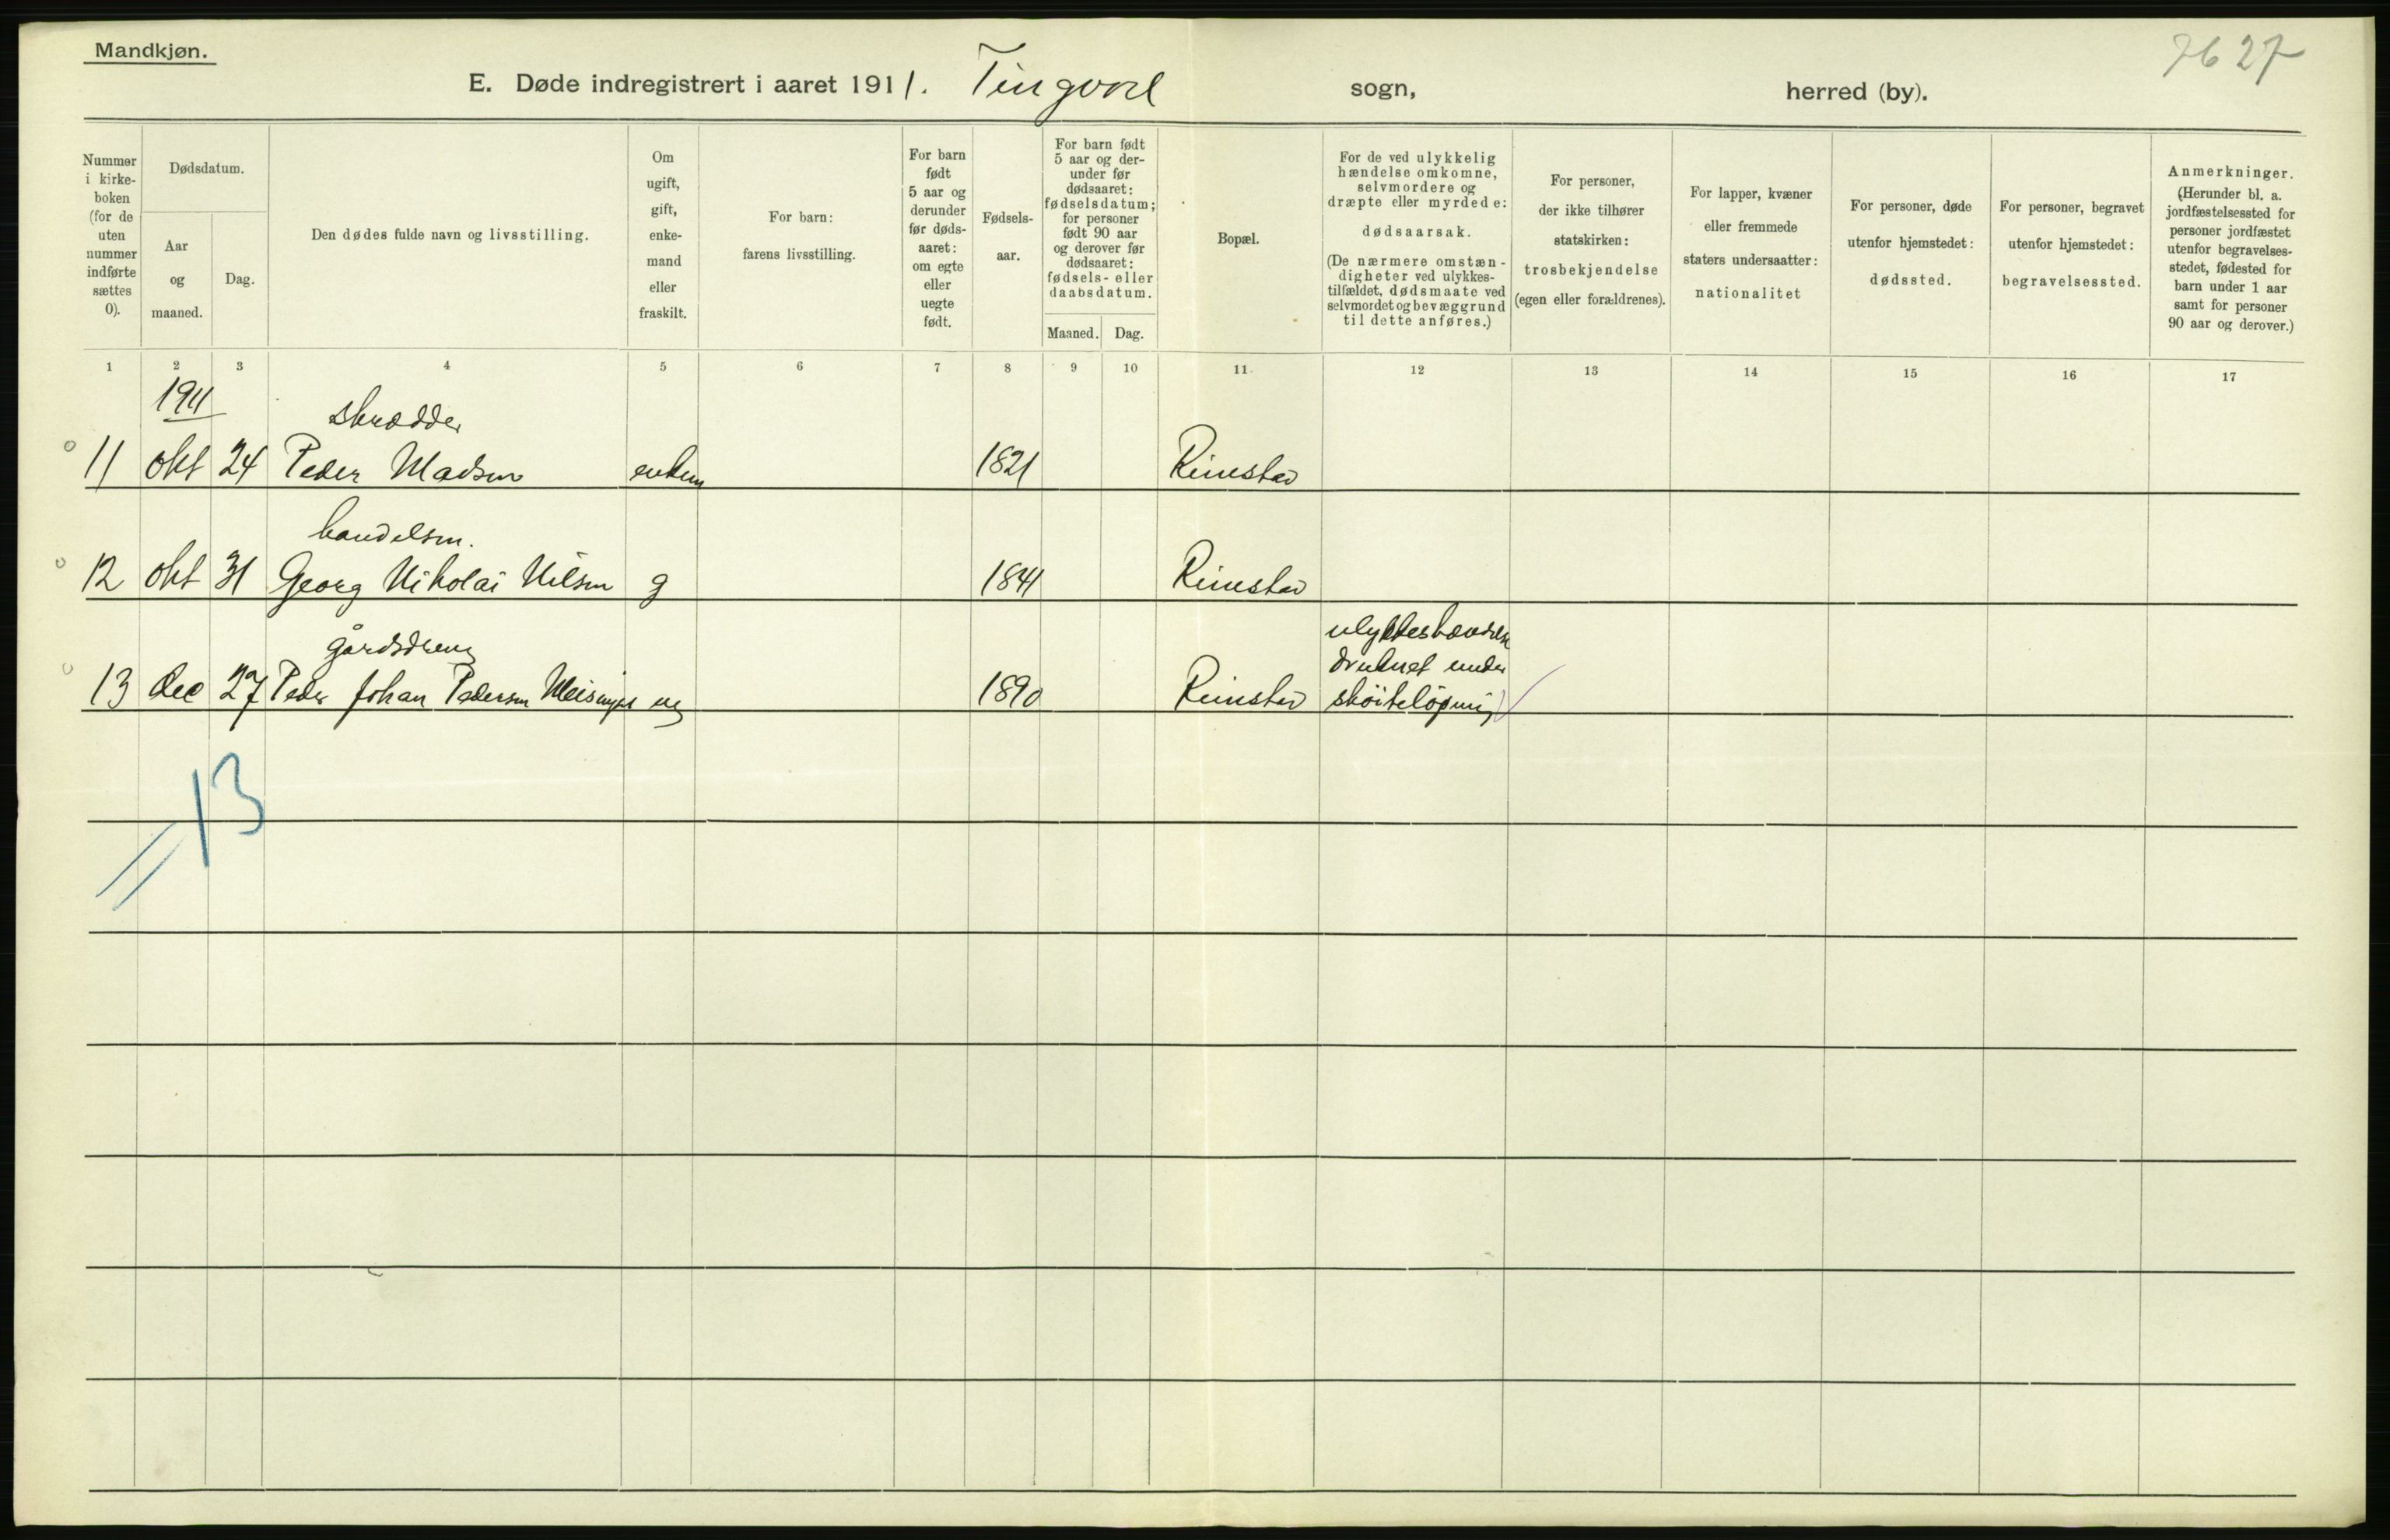 Mandkjøn.
7627
E. Døde indregistrert i aaret 1911. Tingvold sogn, herred (by).
Nummer
i kirke-
boken
(for de
uten
nummer
indførte
sættes
0).
Dødsdatum.
Aar
og
maaned.
Dag.
Den dødes fulde navn og livsstilling.
Om
ugift,
gift,
enke-
mand
eller
fraskilt.
For barn:
farens livsstilling.
For barn
født
5 aar og
derunder
før døds-
aaret:
om egte
eller
uegte
født.
Fødsels-
aar.
For barn født
5 aar og der-
under før
dødsaaret:
fødselsdatum;
for personer
født 90 aar
og derover før
dødsaaret:
fødsels- eller
daabsdatum.
Maaned.
Dag.
Bopæl.
For de ved ulykkelig
hændelse omkomne,
selvmordere og
dræpte eller myrdede:
dødsaarsak.
(De nærmere omstæn-
digheter ved ulykkes-
tilfældet, dødsmaate ved
selvmordet og bevæggrund
til dette anføres.)
For personer,
der ikke tilhører
statskirken:
trosbekjendelse
(egen eller forældrenes).
For lapper, kvæner
eller fremmede
staters undersaatter:
nationalitet
For personer, døde
utenfor hjemstedet:
dødssted.
For personer, begravet
utenfor hjemstedet:
begravelsessted.
Anmerkninger.
(Herunder bl. a.
jordfæstelsessted for
personer jordfæstet
utenfor begravelses-
stedet, fødested for
barn under 1 aar
samt for personer
90 aar og derover.)
1 2 3 4 5 6 7 8 9 10 11 12 13 14 15 16 17
1911
skrædder
11 okt 24 Peder Madsen enkem 1821 Rimstad
handelsm.
12 okt 31 Georg Nikolai Nilsen g 1841 Rimstad
gårdsdreng
ulykkeshændelse
druknet under
13 dec 27 Peder Johan Pedersen ug 1890 Rimstad skøiteløpning
13